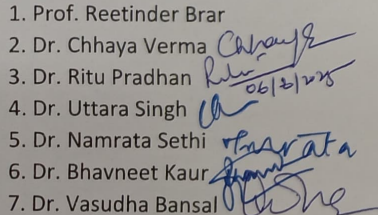 1. Prof. Reetinder Brar
2. Dr. Chhaya Verma Chhaya
3. Dr. Ritu Pradhan Ritu
06/8/2025
4. Dr. Uttara Singh
5. Dr. Namrata Sethi Namrata
6. Dr. Bhavneet Kaur
7. Dr. Vasudha Bansal